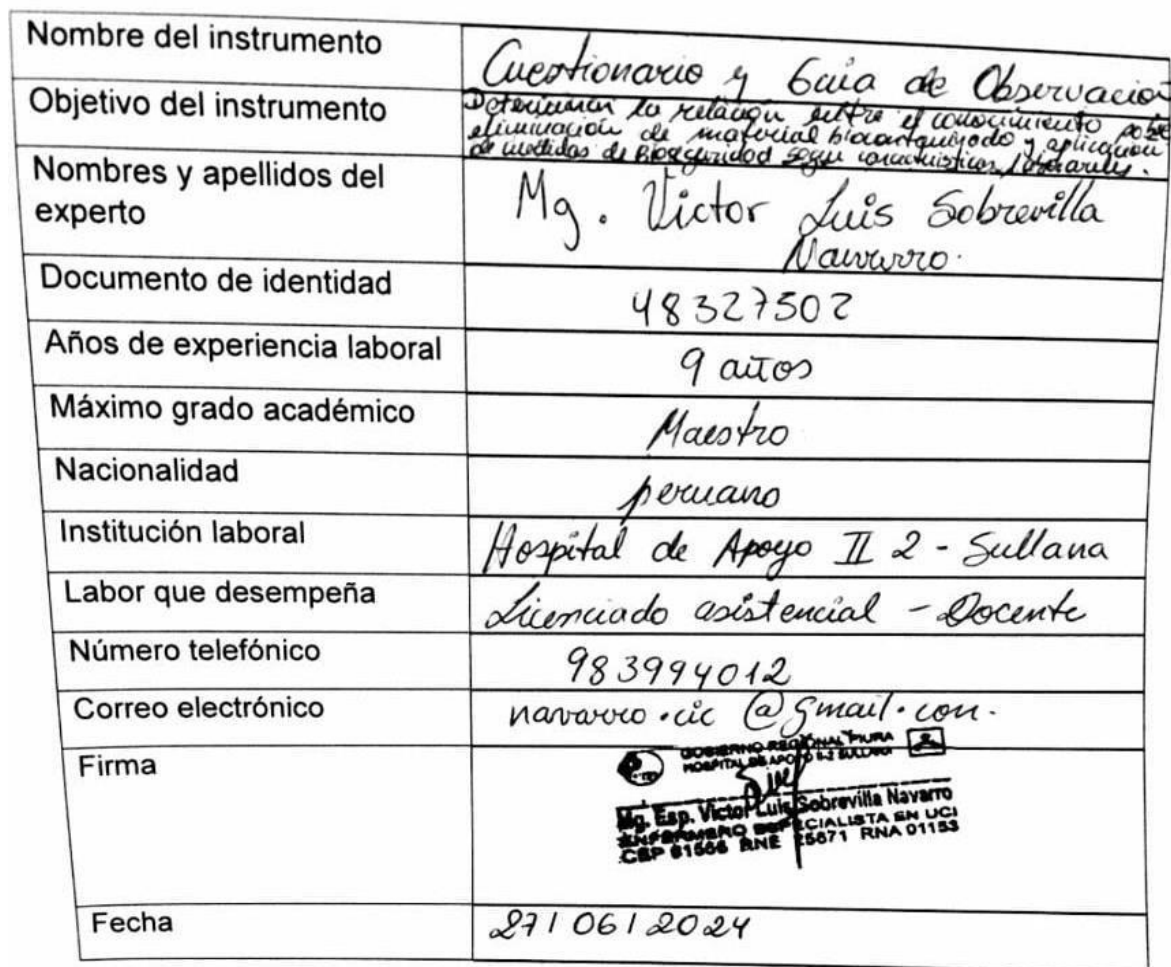 Nombre del instrumento
Cuestionario y Guia de Observación
Objetivo del instrumento
Determinar la relación entre el conocimiento sobre
eliminación de material biocontaminado y aplicación
de medidas de Bioseguridad segun caracteristicas laborales.
Nombres y apellidos del
experto
Mg. Victor Luis Sobrevilla
Navarro.
Documento de identidad
48327502
Años de experiencia laboral
9 años
Máximo grado académico
Maestro
Nacionalidad
peruano
Institución laboral
Hospital de Apoyo II 2 - Sullana
Labor que desempeña
Licenciado asistencial - Docente
Número telefónico
983994012
Correo electrónico
navarro.cic@gmail.con.
Firma
GOBIERNO REGIONAL PIURA
HOSPITAL DE APOYO II-2 SULLANA
Mg. Esp. Victor Luis Sobrevilla Navarro
ENFERMERO ESPECIALISTA EN UCI
CEP 81566 RNE 25671 RNA 01153
Fecha
27/06/2024